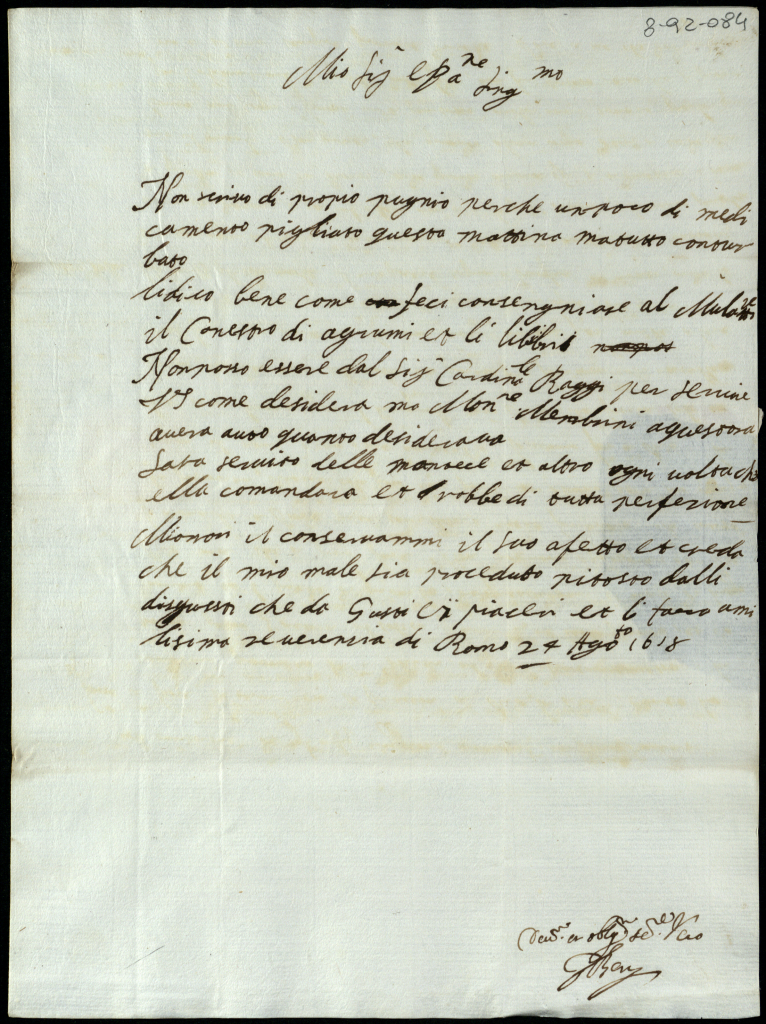 8-92-084
Mio Sig.r e Pa.ne Sing.mo
Non scrivo di propio pugnio perche un poco di medi
camento pigliato questa mattina matutto contur
bato
li dico bene come feci consegniare al Mulat.re
il Canestro di agrumi et li libbri
Non posso essere dal Sig.r Cardin.le Raggi per servire
VS come desidera ma Mon.re Membrini a quest ora
avera auto quanto desiderava
Sara servito delle mantece et altro ogni volta che
ella comandara et robbe di tutta perfezione
Mionori il conservarmi il suo afetto et creda
che il mio male sia proceduto pitosto dalli
disguesti che da Gusti piaceri et li faccio ami
lisima reverensia di Roma 24 Ago.to 1618
et obl.